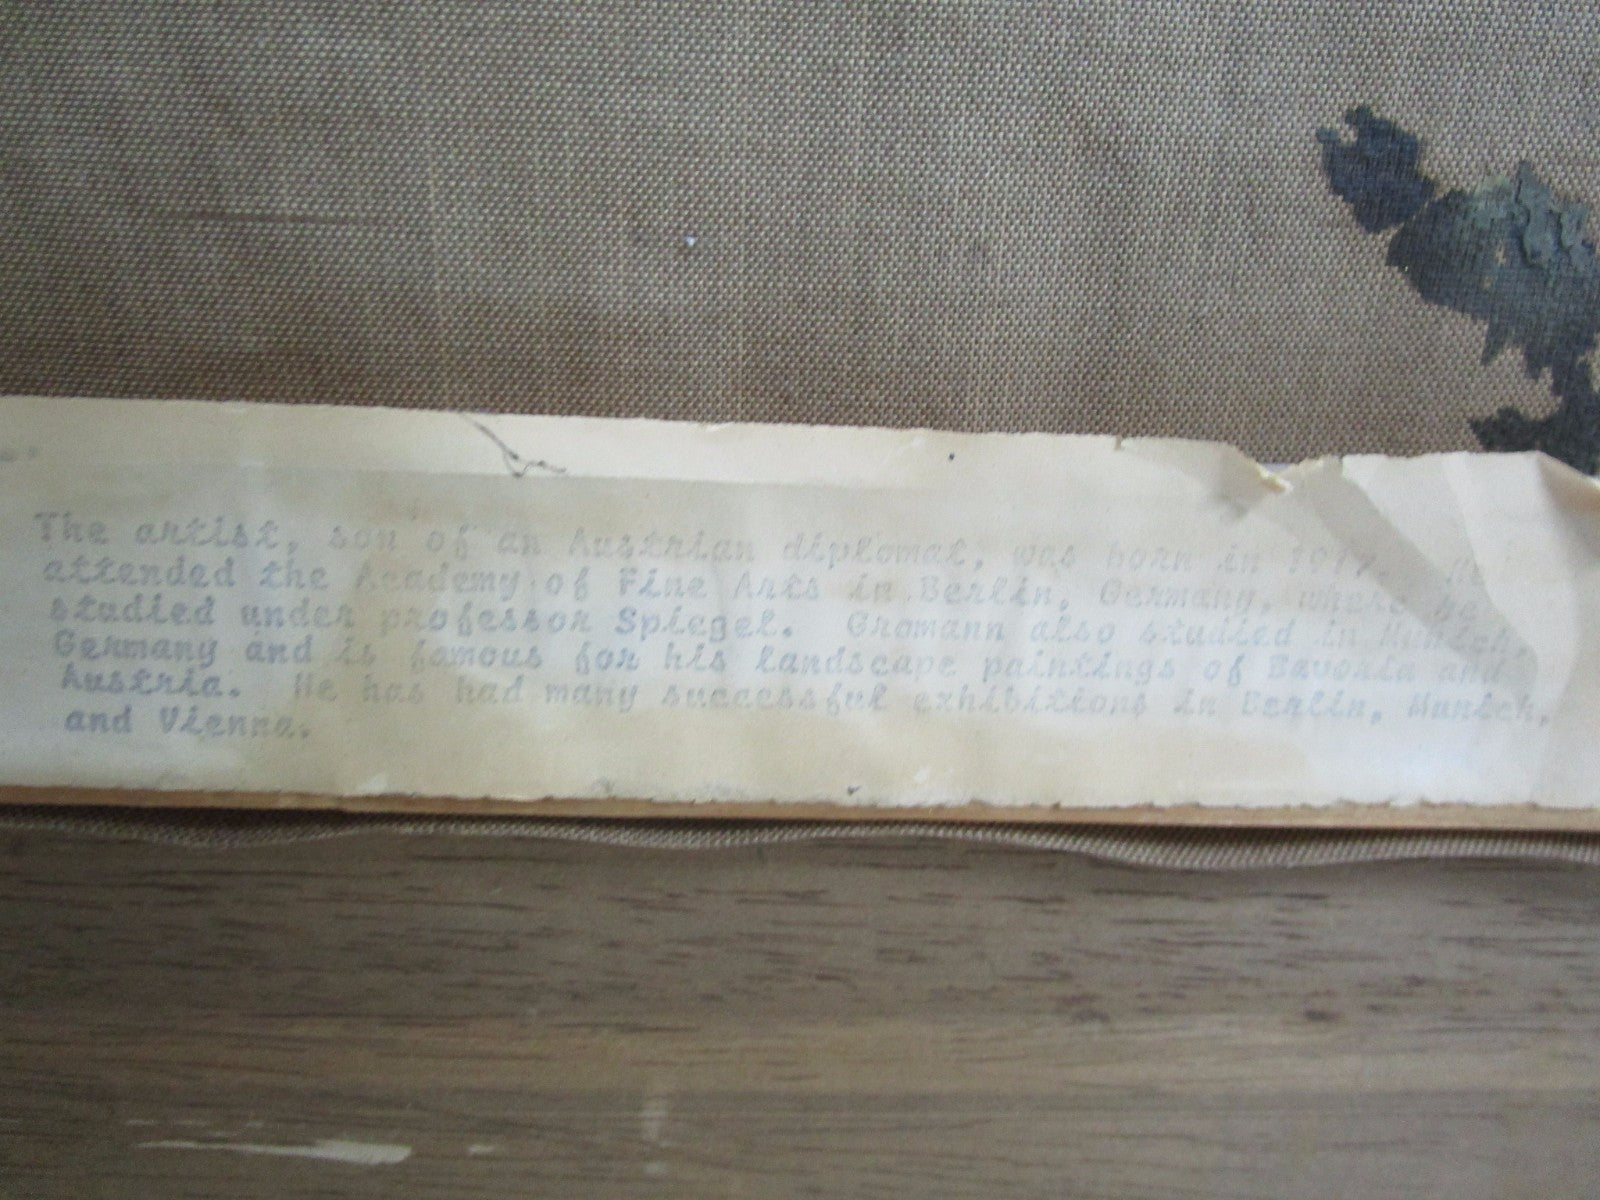 The artist, son of an Austrian diplomat, was born in He
attended the Academy of Fine Arts in Berlin, Germany, where he
studied under professor Spiegel. Gromann also studied in Munich,
Germany and is famous for his landscape paintings of Bavaria and
Austria. He has had many successful exhibitions in Berlin, Munich,
and Vienna.